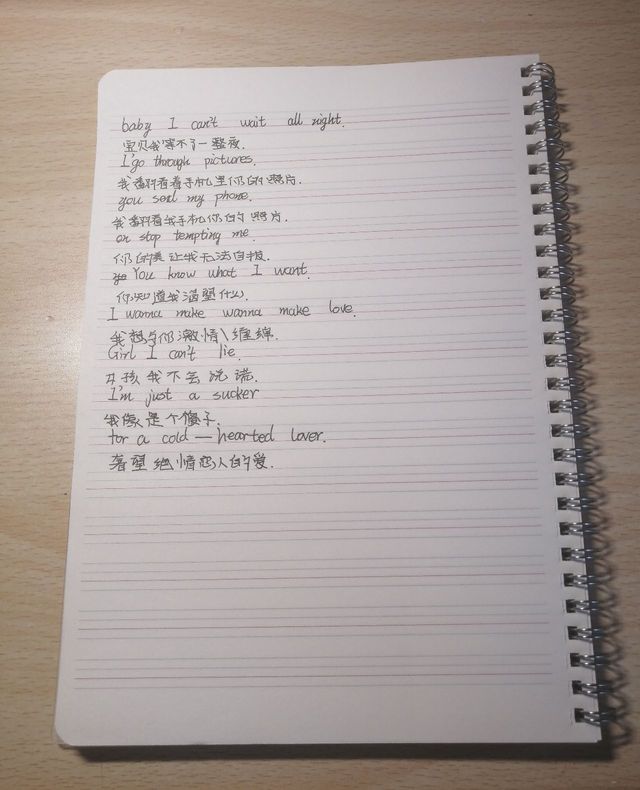 baby I can't wait all night.
宝贝我等不了一整夜.
I go through pictures.
我翻看着手机里你的照片
you send my phone.
我翻看我手机你的照片.
on stop tempting me.
你的诱让我无法自拔.
You know what I want.
你知道我渴望什么.
I wanna make wanna make love.
我想与你激情、缠绵.
Girl I can't lie.
女孩我不会说谎.
I'm just a sucker
我像是个傻子.
for a cold—hearted lover.
奢望绝情恋人的爱.